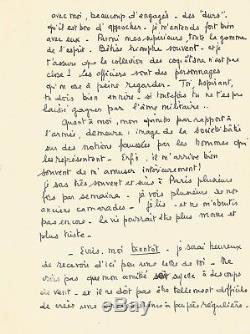 avec moi, beaucoup d'engagés - des "durs".
qu'il est bon d'approcher - je m'entends fort bien
avec eux - Parmi mes supérieurs, toute la gamme
de l'esprit. Bêtise triomphe souvent - et je
t'assure que la collection des coquillons n'est pas
close ! Les officiers sont des personnages
qu'on ose à peine regarder. Toi, aspirant,
tu dois bien aimer - si toutefois tu ne t'es pas
laissé gagner par l'âme militaire..
Quant à moi, mon opinion par rapport à
l'armée, demeure : image de la société bâtie
sur des notions faussées par les hommes qui
les représentent. Enfin, il m'arrive bien
souvent de m'amuser intérieurement !
je sors très souvent et suis à Paris plusieurs
fois par semaine - je vois plusieurs de nos
anciens camarades - je lis - et ne m'abrutis
pas encore. la vie pourrait être plus morne et
plus triste.
- Ecris, moi bientôt - je serai heureux
de recevoir d'ici peu une lettre de toi - Ne
crois pas que mon amitié soit sujette à des coups
de vent - et il ne doit pas être tellement difficile
de créer une correspondance à peu près régulière.